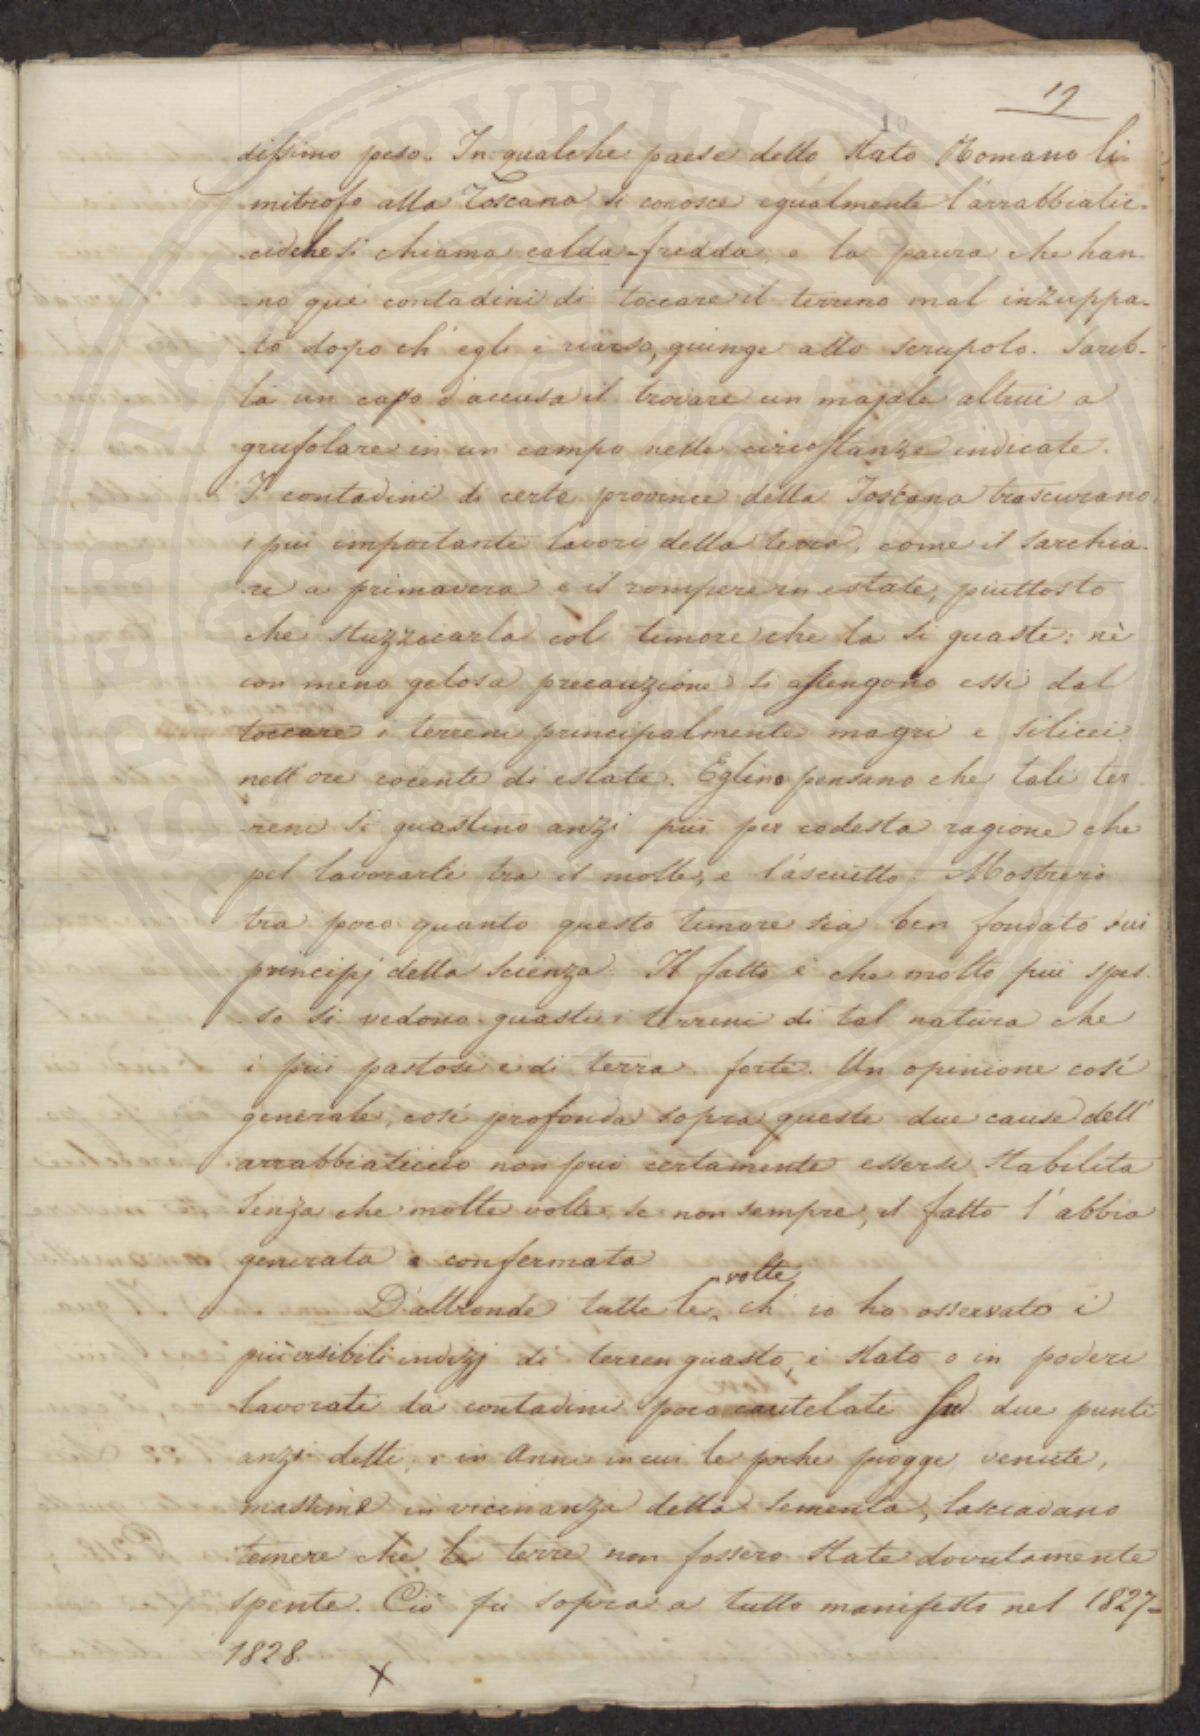 19
10
dissimo peso. In qualche paese dello Stato Romano li-
mitrofo alla Toscana si conosce egualmente l'arrabbiatic-
cio che si chiama calda-fredda e la paura che han-
-no quei contadini di toccare il terreno mal inzuppa-
-to dopo ch'egli è riarso, giunge allo scrupolo. Sareb-
ba un capo d'accusa il trovare un majale altrui a
grufolare in un campo nelle circostanze indicate.
I contadini di certe province della Toscana trascurano
i più importanti lavori della terra, come il sarchia-
re a primavera e il rompere in estate, piuttosto
che stuzzicarla col timore che la si guasti: nè
con meno gelosa precauzione si astengono essi dal
toccare i terreni principalmente magri e silicei
nell'ore cocenti di estate. Eglino pensano che tali ter-
-reni si guastino anzi più per codesta ragione che
pel lavorarli tra il molle, e l'asciutto. Mostrerò
tra poco quanto questo timore sia ben fondato sui
principj della scienza. Il fatto è che molto più spes-
-so si vedono guasti i terreni di tal natura che
i più pastosi e di terra forte. Un opinione così
generale, così profonda sopra queste due cause dell'
arrabbiaticcio non può certamente essersi stabilita
senza che molte volte, se non sempre, il fatto l'abbia
generata e confermata
D'altronde tutte le volte ch'io ho osservato i
più visibili indizj di terren guasto, è stato o in poderi
lavorati da contadini poco cautelati su due punti
anzi detti, o in anni in cui le poche piogge venute,
massime in vicinanza della sementa, lasciavano
temere che le terre non fossero state dovutamente
spente. Ciò fu sopra a tutto manifesto nel 1827-
1828.
X